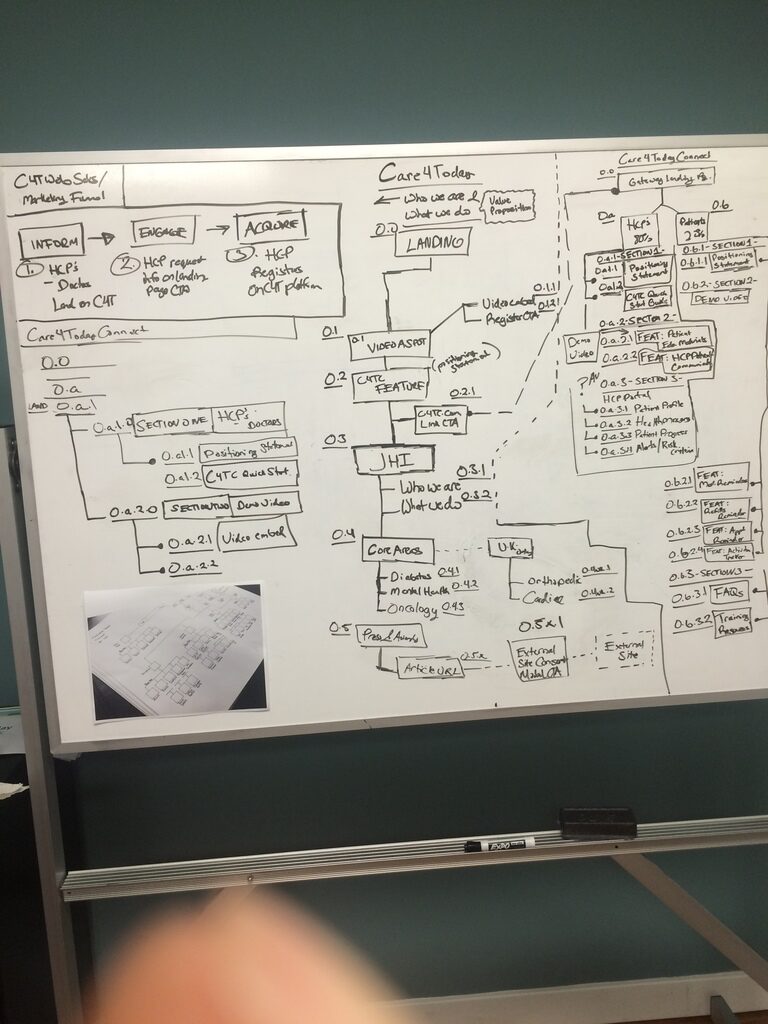 C4T Web Sites/
Marketing Funnel
INFORM
ENGAGE
ACQUIRE
1. HCP's
- Doctors
Land on C4T
2. HCP request
info on landing
page CTA
3. HCP
Registers
on C4T platform
Care4TodayConnect
0.0
0.a
LAND
0.a.1
0.a.1.0
SECTION ONE
HCP's
DOCTORS
0.a1.1
Positioning Statement
0.a1.2
C4TC Quick Start.
0.a.2.0
SECTION TWO
Demo Video
0.a.2.1
Video embed
0.a.2.2
Care4Today
Who we are &
What we do
Value
Proposition
0.0
LANDING
0.1.1
Video embed
0.1.2
Register CTA
0.1
0.1
VIDEO ASPOT
(positioning
statement)
0.2
C4TC
FEATURE
0.2.1
C4TC.com
Link CTA
0.3
JHI
0.3.1
Who we are
What we do
0.3.2
0.4
Core Areas
U.K. Only
Diabetes 0.4.1
Mental Health 0.4.2
Oncology 0.4.3
Orthopedic
Cardiac
0.5
Press & Awards
Article URL
0.5x
0.5x1
External
Site Consent
Modal CTA
External
Site
Care4TodayConnect
0.0
Gateway Landing Pg.
0.a
HCP's
80%
0.b
Patients
20%
0.a.1 - SECTION 1 -
0.a1.1
Positioning
Statement
0.a1.2
C4TC Quick
Start Guide
0.a.2 - SECTION 2 -
Demo
Video
0.a.2.1
FEAT: Patient
Edu Materials
0.a.2.2
FEAT: HCP Patient
0.a.3 - SECTION 3 -
HCP Portal
0.a.3.1 Patient Profile
0.a.3.2
0.a.3.3 Patient Progress
0.a.3.4 Alerts/Risk
criteria
0.b.1 - SECTION 1
0.b.1.1
Positioning
Statement
0.b.2 - SECTION 2
DEMO VIDEO
0.b.2.1
FEAT:
Med Reminders
0.b.2.2
FEAT:
Refills
Reminder
0.b.2.3
FEAT: Appt
Reminder
0.b.2.4
FEAT: Activity
Tracker
0.b.3 - SECTION 3 -
0.b.3.1
FAQs
0.b.3.2
Training
Request
EXPO